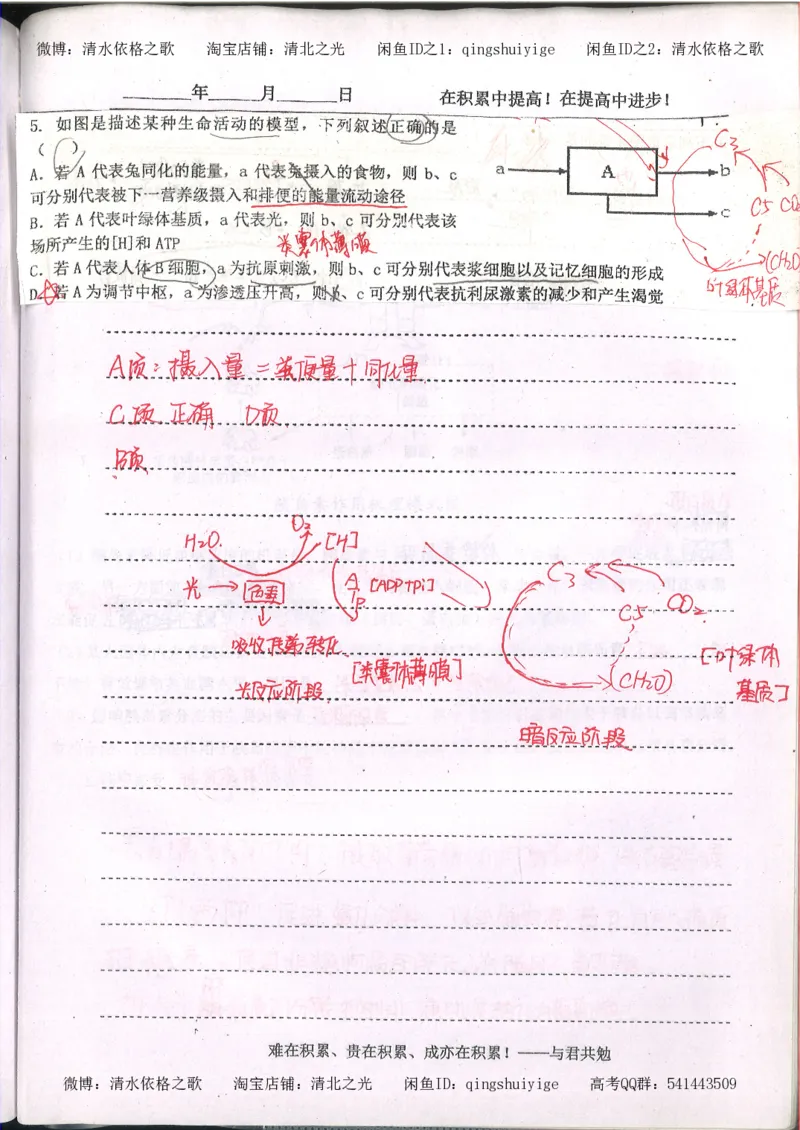 微博：清水依格之歌 淘宝店铺：清北之光 闲鱼ID之1：qingshuiyige 闲鱼ID之2：清水依格之歌
年 月 日 在积累中提高！在提高中进步！
5. 如图是描述某种生命活动的模型，下列叙述正确的是
（ ）
A. 若 A 代表兔同化的能量，a 代表兔摄入的食物，则 b、c
可分别代表被下一营养级摄入和排便的能量流动途径
B. 若 A 代表叶绿体基质，a 代表光，则 b、c 可分别代表该
场所产生的[H]和 ATP
类囊体薄膜
C. 若 A 代表人体 B 细胞，a 为抗原刺激，则 b、c 可分别代表浆细胞以及记忆细胞的形成
D. 若 A 为调节中枢，a 为渗透压升高，则 b、c 可分别代表抗利尿激素的减少和产生渴觉
a A b c
C3 C5 CO2 (CH2O)
叶绿体基质
A项：摄入量＝粪便量＋同化量
C项 正确 D项
B项
H2O O2 [H]
光 色素 ATP [ADP+Pi] C3 C5 CO2
吸收传递转化 (CH2O)
[类囊体薄膜] [叶绿体
基质]
光反应阶段
暗反应阶段
难在积累、贵在积累、成亦在积累！——与君共勉
微博：清水依格之歌 淘宝店铺：清北之光 闲鱼ID：qingshuiyige 高考QQ群：541443509